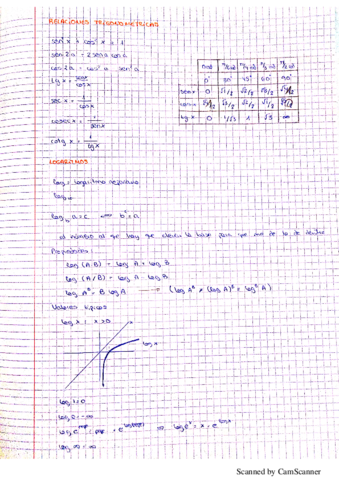 RELACIONES TRIGONOMÉTRICAS
sen² x + cos² x = 1
sen 2a = 2 sen a cos a
cos 2a = cos² a - sen² a
tg x = sen x / cos x
sec x = 1 / cos x
cosec x = 1 / sen x
cotg x = 1 / tg x
0° 30° 45° 60° 90°
sen x 0 1/2 √2/2 √3/2
cos x √3/2 √2/2 1/2
tg x 0 1/√3 1 √3 ∞
LOGARITMOS
log = logaritmo neperiano
log_b a = c ⟺ b^c = a
el número al que hay que elevar la base para que me de lo de dentro
Propiedades
log (A·B) = log A + log B
log (A/B) = log A - log B
log A^B = B log A → (log A^B ≠ (log A)^B = log^B A)
Valores típicos
log x ; x > 0
log x
log 1 = 0
log 0 = -∞
⇒ log e^x = x = e^{log x}
log ∞ = ∞
Scanned by CamScanner